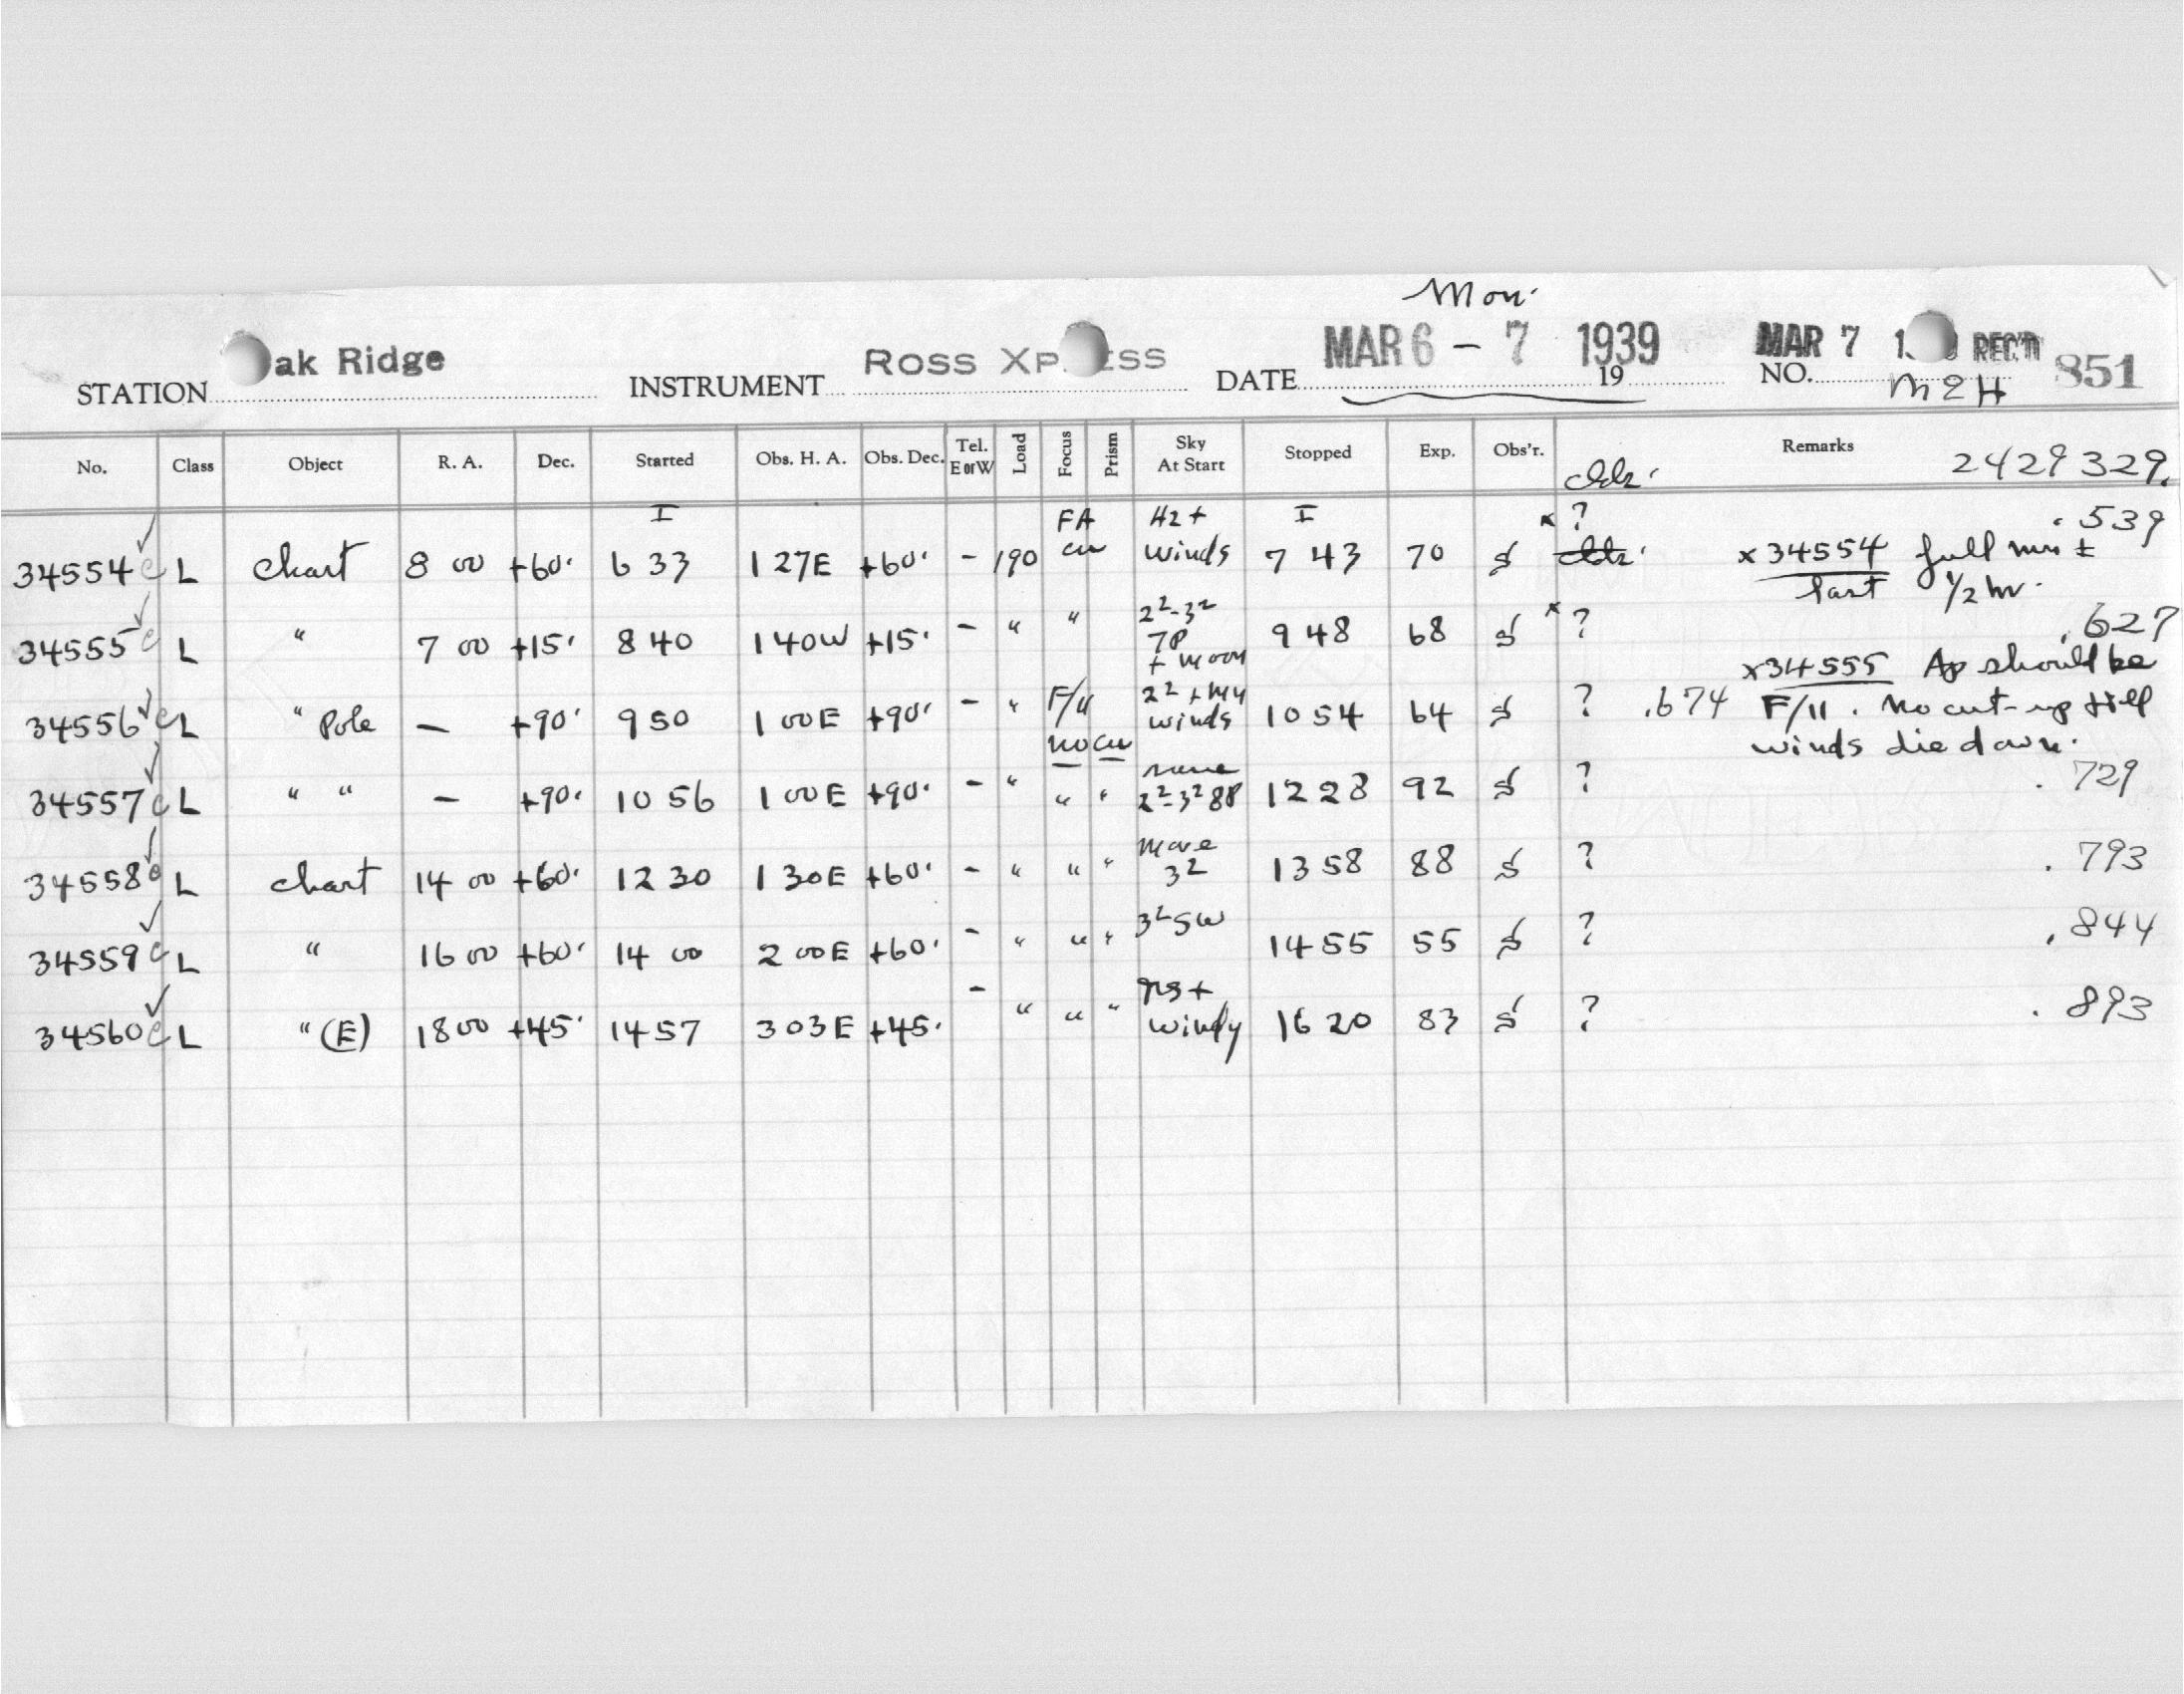 Mon.
STATION ak Ridge INSTRUMENT ROSS XP ESS DATE MAR 6 - 7 1939 19 MAR 7 1 REC'D NO. 851
No. Class Object R. A. Dec. Started Obs. H. A. Obs. Dec. Tel. E or W Load Focus Prism Sky At Start Stopped Exp. Obs'r. Remarks 2429329.
I FA H2+ I x ? .539
34554 c L chart 8 00 +60· 6 33 1 27E +60· - 190 cu winds 7 43 70 x 34554 full mn ±
last 1/2 hr.
34555 c L " 7 00 +15· 8 40 1 40W +15· - " " 2²-3² 7P + moon 9 48 68 x ? .627
x34555 Ap should be
34556 c L " Pole — +90· 9 50 1 00E +90· - " F/11 2² + My winds 10 54 64 ? .674 F/11. No cut-up till
no cu winds die down.
34557 c L " " — +90· 10 56 1 00E +90· - " " " 2²-3² 88 12 28 92 ? .729
34558 c L chart 14 00 +60· 12 30 1 30E +60· - " " " more 3² 13 58 88 ? .793
34559 c L " 16 00 +60· 14 00 2 00E +60· - " " " 3² SW 14 55 55 ? .844
34560 c L " (E) 18 00 +45· 14 57 3 03E +45· - " " " windy 16 20 83 ? .893